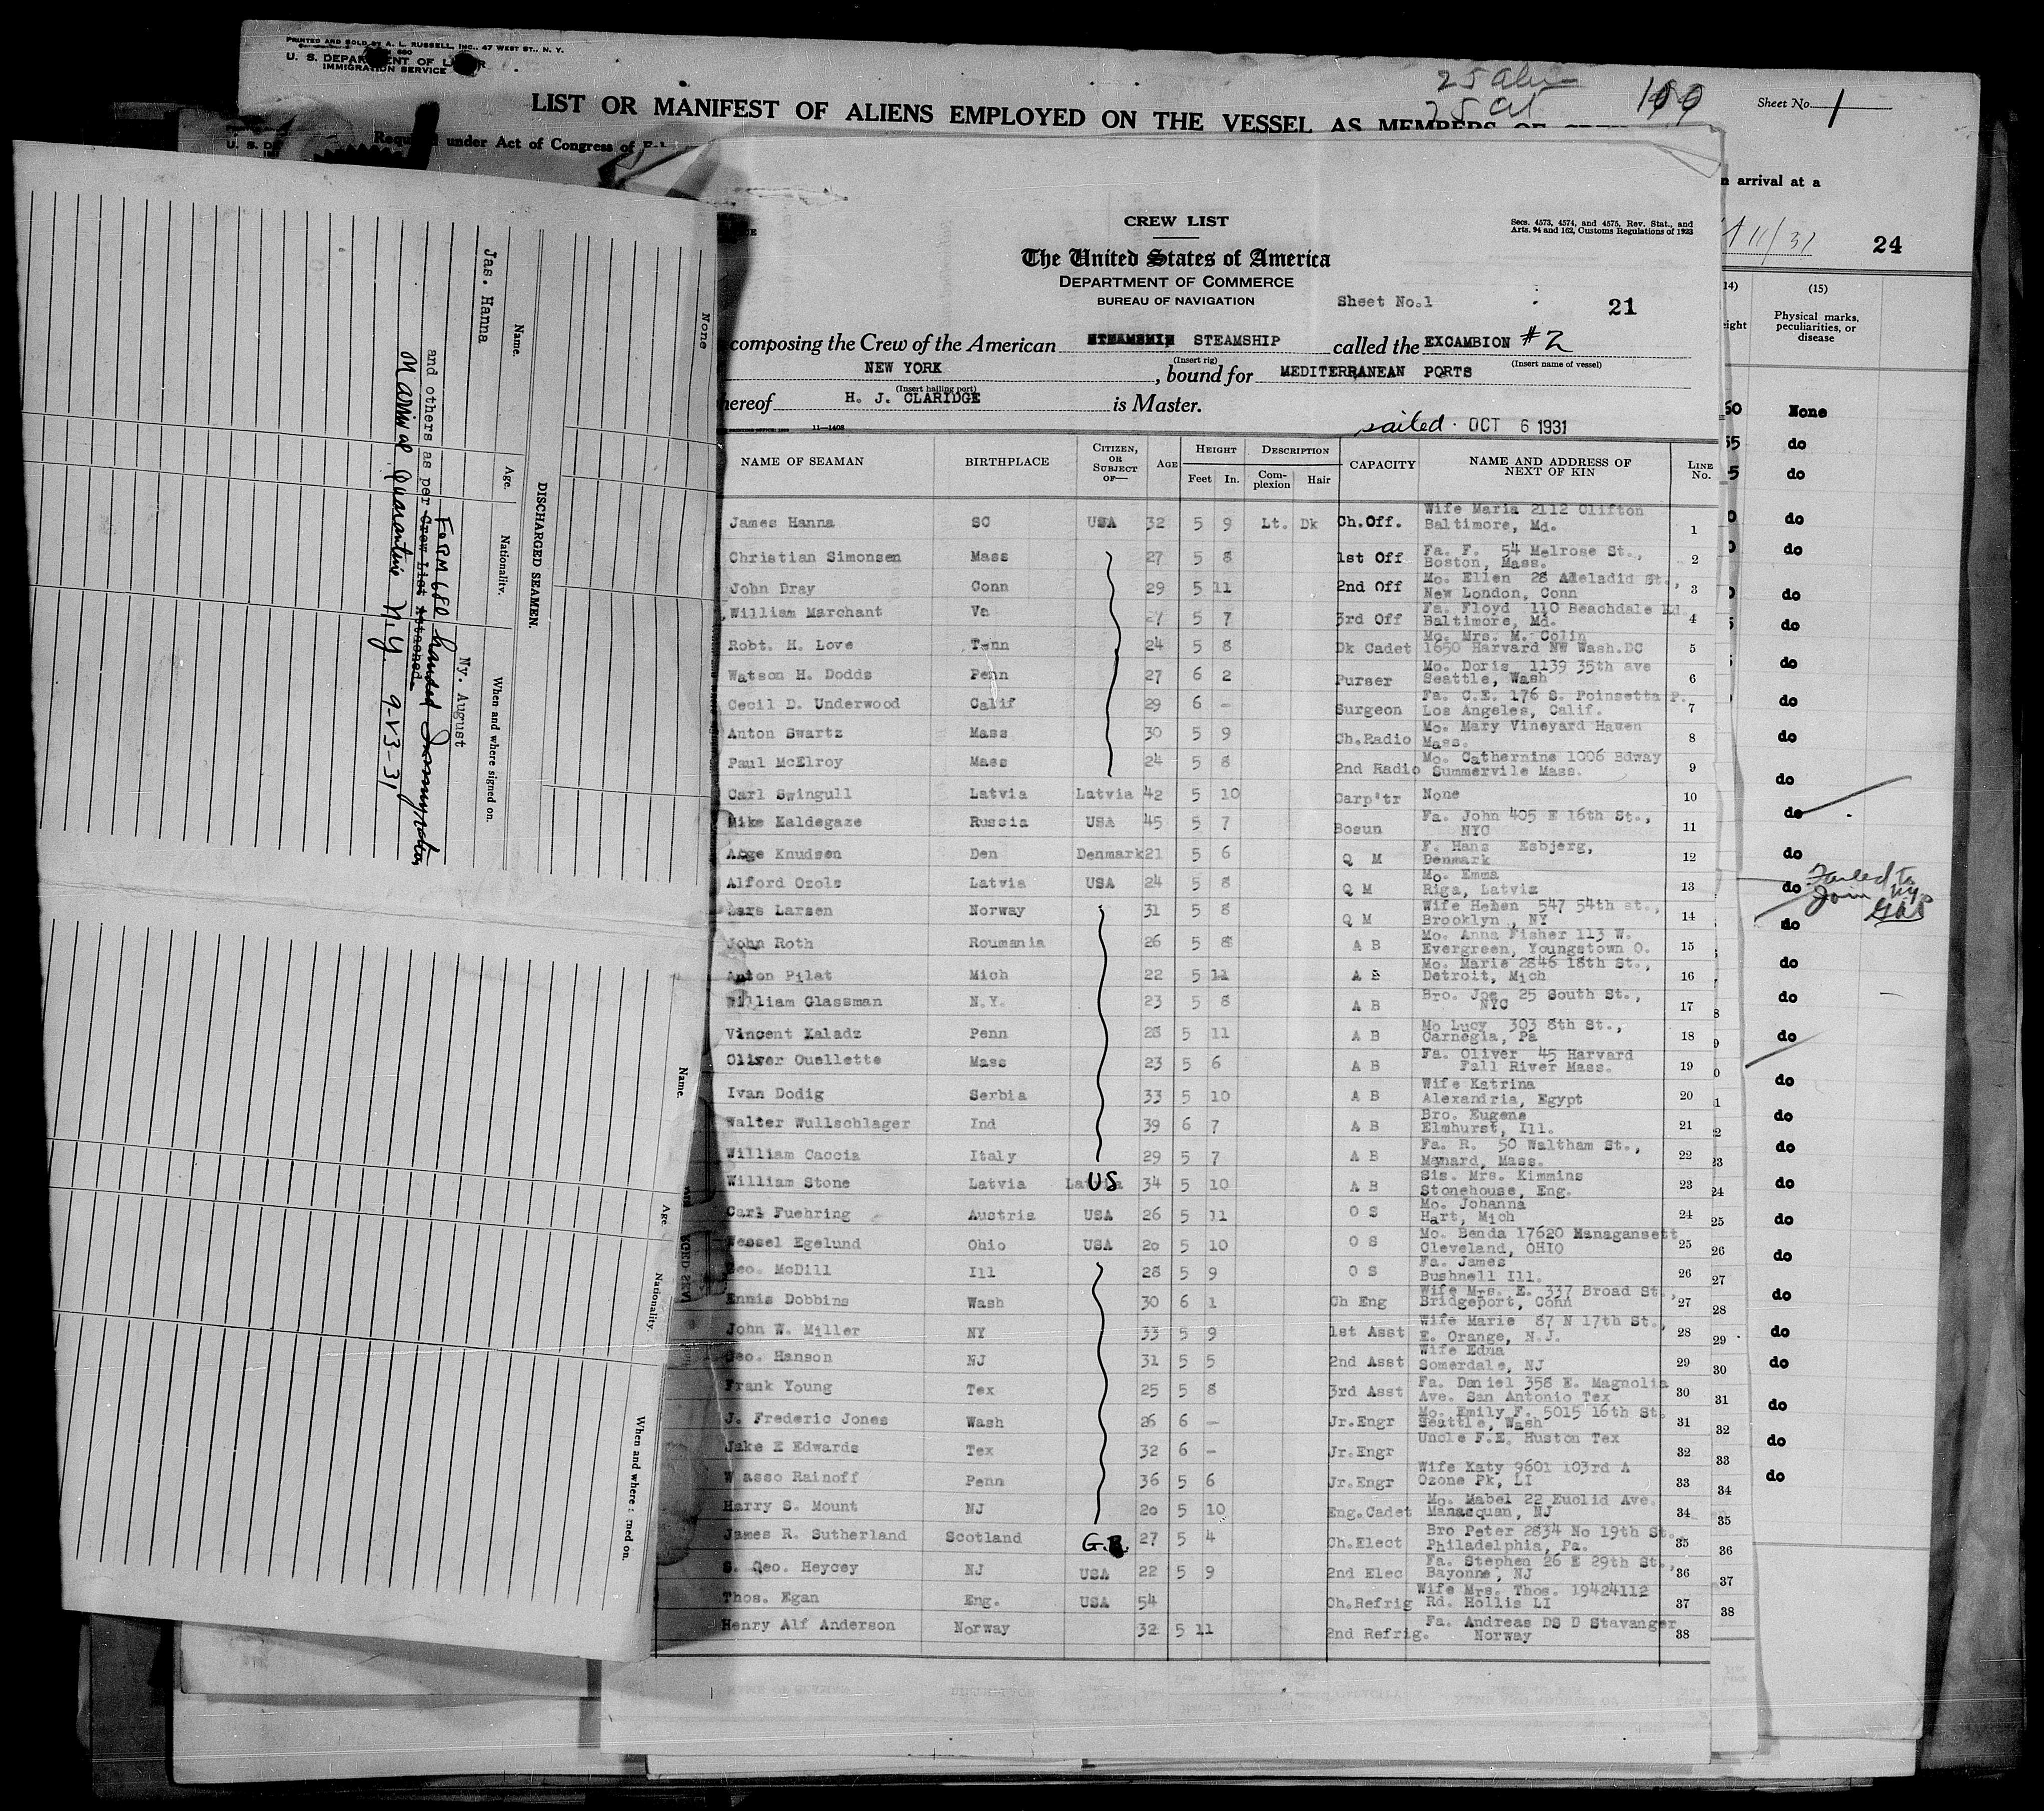 PRINTED AND SOLD BY A. L. RUSSELL, INC., 47 WEST ST., N. Y.
U. S. DEPARTMENT OF LABOR
IMMIGRATION SERVICE
25 Cit
Sheet No. 1
LIST OR MANIFEST OF ALIENS EMPLOYED ON THE VESSEL AS MEMBERS OF CREW
under Act of Congress of
n arrival at a
24
(14)
(15)
eight
Physical marks, peculiarities, or disease
None
do
do
do
do
do
do
do
do
do
do
do
do
do Failed to
Join NY
do
do
do
do
do
do
do
do
do
do
do
do
do
do
do
do
None
DISCHARGED SEAMEN.
Name. Age. Nationality. When and where signed on.
Jas. Hanna Ny. August
and others as per Crew List Attached
Form 680 handed Immigration
N arrival Quarantine N.Y. 9-V3-31
Name. Age. Nationality. When and where
CREW LIST
Secs. 4573, 4574, and 4575, Rev. Stat., and
Arts. 94 and 162, Customs Regulations of 1923
The United States of America
DEPARTMENT OF COMMERCE
BUREAU OF NAVIGATION
Sheet No.1
21
composing the Crew of the American STEAMSHIP called the EXCAMBION #2
(Insert rig) (Insert name of vessel)
NEW YORK, bound for MEDITERRANEAN PORTS
(Insert hailing port)
hereof H. J. CLARIDGE is Master.
11—1408
sailed OCT 6 1931
NAME OF SEAMAN BIRTHPLACE CITIZEN, OR SUBJECT OF— AGE HEIGHT Feet In. DESCRIPTION Complexion Hair CAPACITY NAME AND ADDRESS OF NEXT OF KIN LINE No.
James Hanna SC USA 32 5 9 Lt. Dk Ch.Off. Wife Maria 2112 Clifton Baltimore, Md. 1
Christian Simonsen Mass 27 5 8 1st Off Fa. F. 54 Melrose St., Boston, Mass. 2
John Dray Conn 29 5 11 2nd Off Mo. Ellen 28 Adeladid St., New London, Conn 3
William Marchant Va 27 5 7 3rd Off Fa. Floyd 110 Beachdale Rd. Baltimore, Md. 4
Robt. H. Love Tenn 24 5 8 Dk Cadet Mo. Mrs. M. Colin 1650 Harvard NW Wash.DC 5
Watson H. Dodds Penn 27 6 2 Purser Mo. Doris 1139 35th ave Seattle, Wash 6
Cecil D. Underwood Calif 29 6 - Surgeon Fa. C.E. 176 S. Poinsetta P. Los Angeles, Calif. 7
Anton Swartz Mass 30 5 9 Ch.Radio Mo. Mary Vineyard Haven Mass. 8
Paul McElroy Mass 24 5 8 2nd Radio Mo. Cathernine 1006 Bdway Summervile Mass. 9
Carl Swingull Latvia Latvia 42 5 10 Carp'tr None 10
Mike Kaldegaze Russia USA 45 5 7 Bosun Fa. John 405 E 16th St., NYC 11
Aage Knudsen Den Denmark 21 5 6 Q M F. Hans Esbjerg, Denmark 12
Alford Ozols Latvia USA 24 5 8 Q M Mo. Emma Riga, Latvia 13
Lars Larsen Norway 31 5 8 Q M Wife Helen 547 54th st., Brooklyn, NY 14
John Roth Roumania 26 5 8 A B Mo. Anna Fisher 113 W. Evergreen, Youngstown O. 15
Anton Pilat Mich 22 5 11 A B Mo. Marie 2846 18th St., Detroit, Mich 16
William Glassman N.Y. 23 5 8 A B Bro. Joe 25 South St., NYC 17
Vincent Kaladz Penn 28 5 11 A B Mo Lucy 303 8th St., Carnegia, Pa 18
Oliver Ouellette Mass 23 5 6 A B Fa. Oliver 45 Harvard Fall River Mass. 19
Ivan Dodig Serbia 33 5 10 A B Wife Katrina Alexandria, Egypt 20
Walter Wullschlager Ind 39 6 7 A B Bro. Eugene Elmhurst, Ill. 21
William Caccia Italy 29 5 7 A B Fa. R. 50 Waltham St., Maynard, Mass. 22
William Stone Latvia US 34 5 10 A B Sis. Mrs. Kimmins Stonehouse, Eng. 23
Carl Fuehring Austria USA 26 5 11 O S Mo. Johanna Hart, Mich 24
Wessel Egelund Ohio USA 20 5 10 O S Mo. Benda 17620 Managansett Cleveland, OHIO 25
Geo. McDill Ill 28 5 9 O S Fa. James Bushnell Ill. 26
Ennis Dobbins Wash 30 6 1 Ch Eng Wife Mrs. E. 337 Broad St., Bridgeport, Conn 27
John W. Miller NY 33 5 9 1st Asst Wife Marie 87 N 17th St., E. Orange, N.J. 28
Geo. Hanson NJ 31 5 5 2nd Asst Wife Edna Somerdale, NJ 29
Frank Young Tex 25 5 8 3rd Asst Fa. Daniel 358 E. Magnolia Ave. San Antonio Tex 30
J. Frederic Jones Wash 26 6 - Jr.Engr Mo. Emily F. 5015 16th St. Seattle, Wash 31
Jake E Edwards Tex 32 6 - Jr.Engr Uncle F.E. Huston Tex 32
Wasso Rainoff Penn 36 5 6 Jr.Engr Wife Katy 9601 103rd A Ozone Pk, LI 33
Harry S. Mount NJ 20 5 10 Eng.Cadet Mo. Mabel 22 Euclid Ave. Manasquan, NJ 34
James R. Sutherland Scotland G.B. 27 5 4 Ch.Elect Bro Peter 2834 No 19th St., Philadelphia, Pa. 35
S. Geo. Heycey NJ USA 22 5 9 2nd Elec Fa. Stephen 26 E 29th St., Bayonne, NJ 36
Thos. Egan Eng. USA 54 Ch.Refrig Wife Mrs. Thos. 19424112 Rd. Hollis LI 37
Henry Alf Anderson Norway 32 5 11 2nd Refrig. Fa. Andreas DS D Stavanger Norway 38